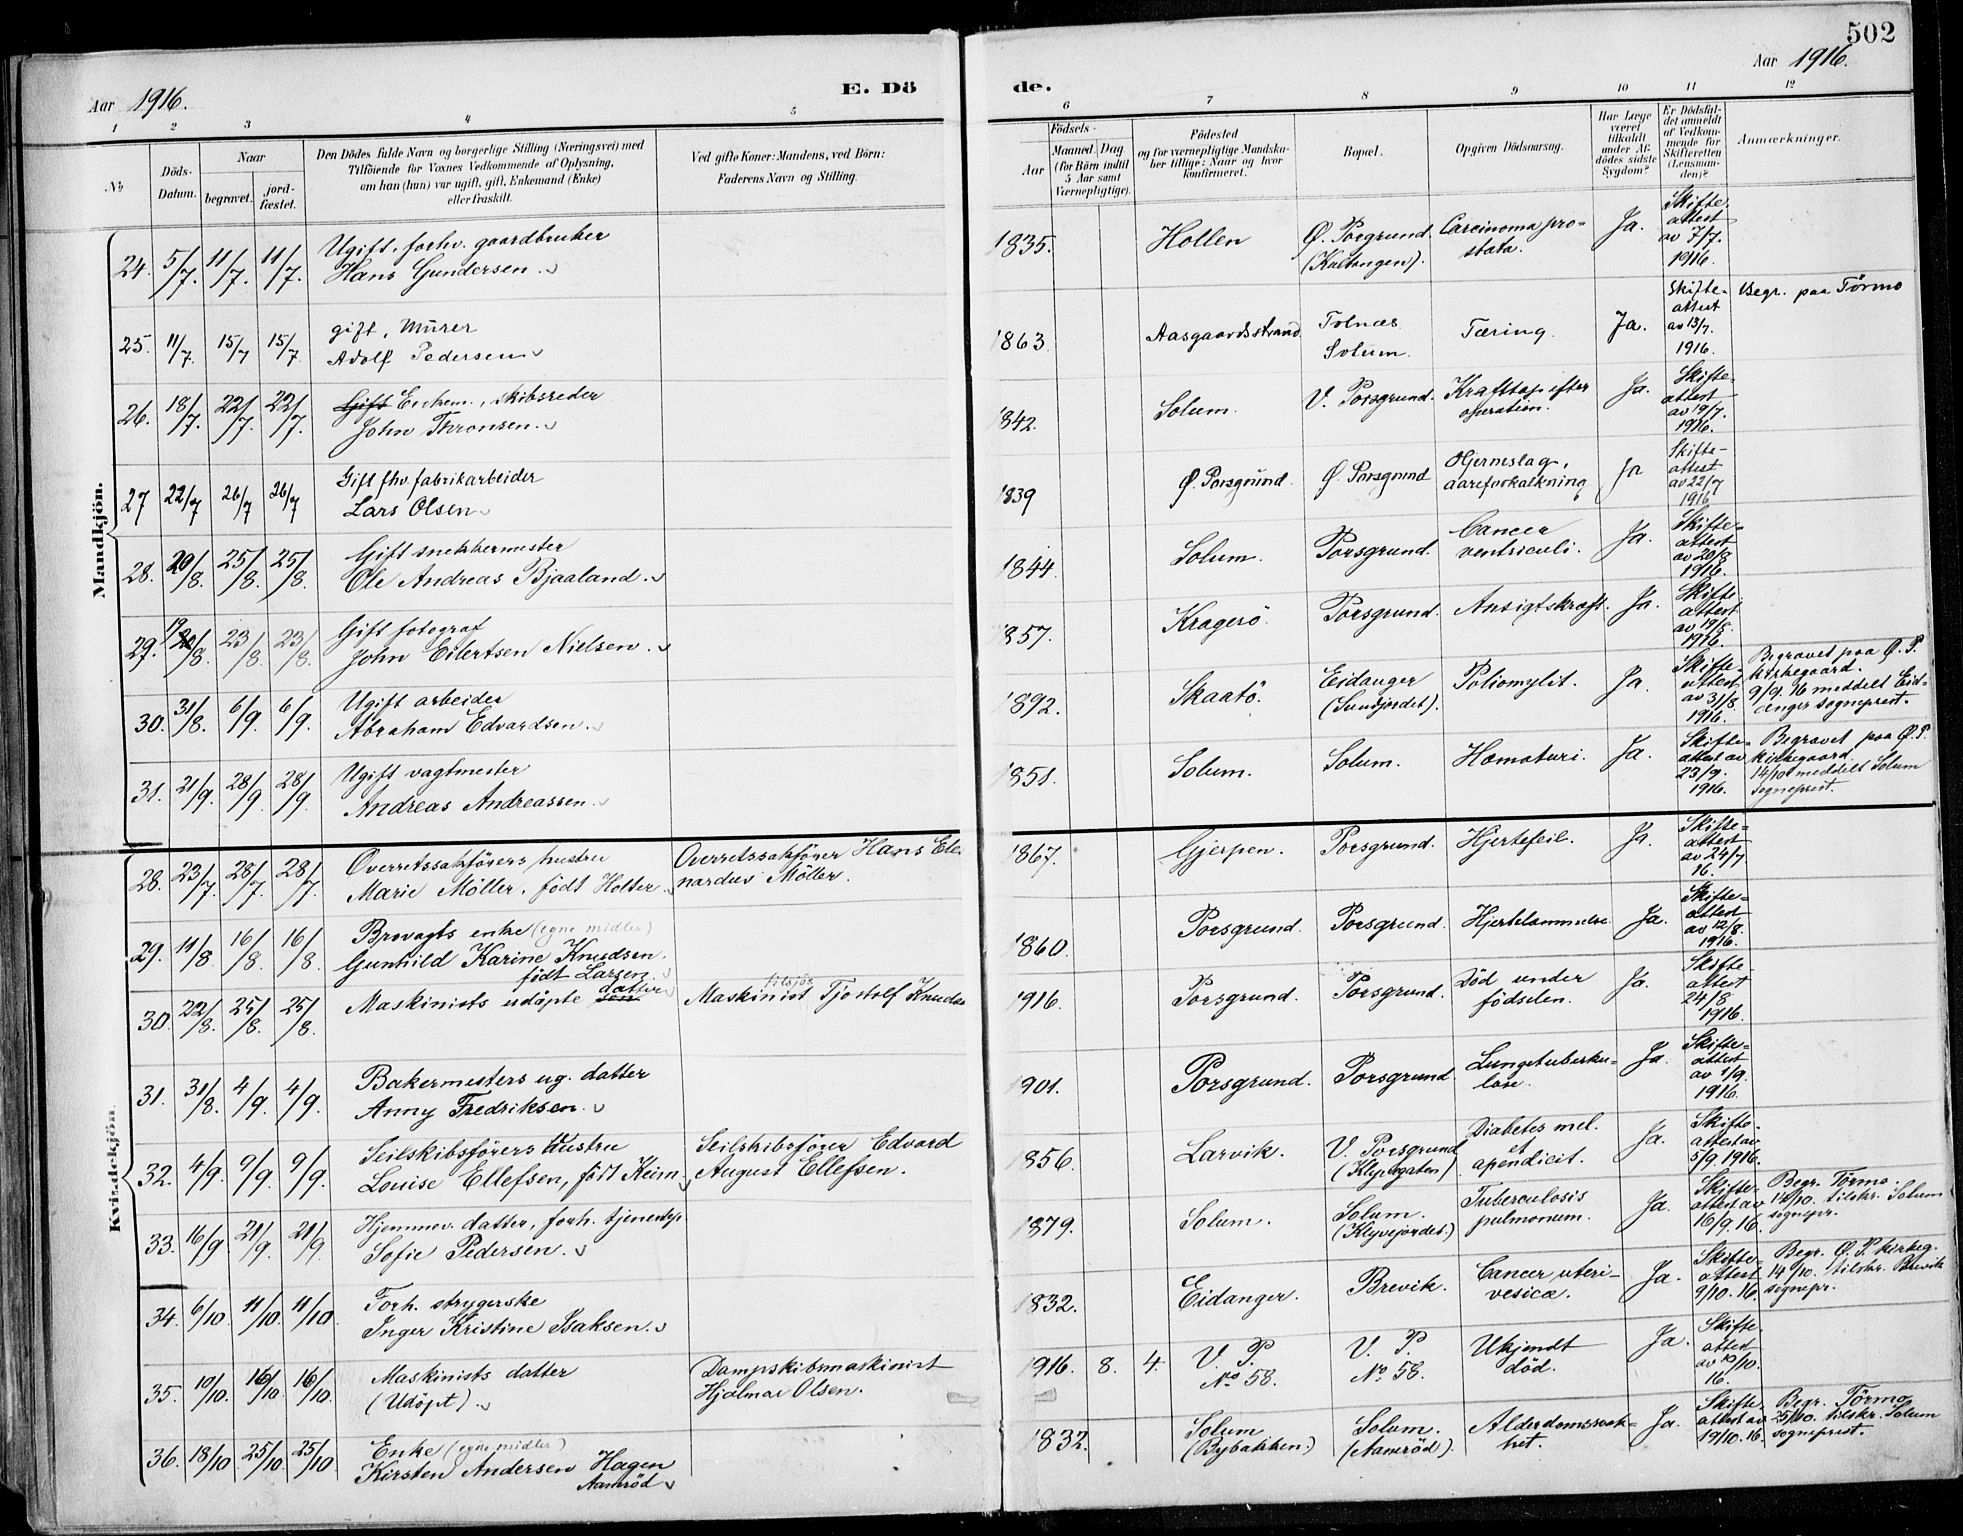 502
Aar 1916.
E. Dö
de.
Aar 1916.
1 2 3 4 5 6 7 8 9 10 11 12
№
Döds-
Datum.
Naar
begravet.
jord-
fæstet.
Den Dödes fulde Navn og borgerlige Stilling (Næringsvei) med
Tilföiende for Voxnes Vedkommende af Oplysning,
om han (hun) var ugift, gift, Enkemand (Enke)
eller fraskilt.
Ved gifte Koner: Mandens, ved Börn:
Faderens Navn og Stilling.
Födsels-
Aar
Maaned. Dag
(for Börn indtil
5 Aar samt
Værnepligtige).
Födested
og for værnepligtige Mandskaber tillige: Naar og hvor
konfirmeret.
Bopæl.
Opgiven Dödsaarsag.
Har Læge
været
tilkaldt
under Afdödes sidste
Sygdom?
Er Dödsfaldet anmeldt
af Vedkommende for
Skifteretten
(Lensmanden)?
Anmærkninger.
Mandkjön.
24. 5/7. 11/7. 11/7. Ugift, forhv. gaardbruker
Hans Gundersen.
1835. Hollen Ø. Porsgrund. (Kultangen). Carcinoma prostata. Ja. Skifteattest av 7/7. 1916.
25. 11/7. 15/7 15/7. gift, Murer
Adolf Pedersen
1863. Aasgaardsstrand Tolnæs Solum. Tæring. Ja. Skifteattest av 13/7. 1916. Begr. paa Törmo
26. 18/7. 22/7. 22/7. Gift Enkem., skibsreder
John Thronsen.
1842. Solum. V. Porsgrund. Krafttap efter operation. Ja. Skifteattest av 19/7. 1916.
27 22/7 26/7 26/7 Gift fhv. fabrikarbeider
Lars Olsen
1839 Ø. Porsgrund. Ø. Porsgrund Hjerneslag, aareforkalkning Ja Skifteattest av 22/7 1916
28. 20/8. 25/8. 25/8. Gift snekkermester
Ole Andreas Bjaaland.
1844. Solum. Porsgrund. Cancer ventriculi. Ja. Skifteattest av 20/8 1916.
29. 19/8. 23/8. 23/8. Gift fotograf
John Eilertsen Nielsen.
1857. Kragerö. Porsgrund. Ansigtskræft. Ja. Skifteattest av 19/8. 1916.
30. 31/8. 6/9. 6/9. Ugift arbeider
Abraham Edvardsen.
1892. Skaatö. Eidanger (Sundjordet). Poliomylit. Ja. Skifteattest av 31/8. 1916. Begravet paa Ø. P. kirkegaard. 9/9. 16 meddelt Eidanger sogneprest.
31. 21/9. 28/9. 28/9. Ugift vagtmester
Andreas Andreassen.
1851. Solum. Solum. Homoturi. Ja. Skifteattest av 23/9. 1916. Begravet paa Ø. P. kirkegaard 14/10 meddelt Solum sogneprest.
Kvindekjön.
28. 23/7. 28/7. 28/7. Overretssakförers hustru
Marie Möller, födt Holter.
Overretssakförer Hans Elenardus Möller.
1867. Gjerpen. Porsgrund. Hjertefeil. Ja. Skifteattest av 24/7 16.
29. 11/8. 16/8. 16/8. Brovagts enke (egne midler)
Gunhild Karine Knudsen.
födt Larsen.
1860. Porsgrund. Porsgrund. Hjertelammelse. Ja. Skifteattest av 12/8. 1916.
30. 22/8. 25/8. 25/8. Maskinists udöpte son datter
Maskinist Tjostolf Knudsen
1916. Porsgrund. Porsgrund. Död under födselen. Ja. Skifteattest 24/8 1916.
31. 31/8. 4/9. 4/9. Bakermesters ug. datter
Anny Fredriksen.
1901. Porsgrund. Porsgrund Lungetuberkulose. Ja. Skifteattest av 1/9. 1916.
32. 4/9. 9/9. 9/9. Seilskibsförers Hustru
Louise Ellefsen, födt Keim.
Seilskibsförer Edvard August Ellefsen.
1856. Larvik. V. Porsgrund (Klyvegaten) Diabetes mel. et apendicit. Ja. Skifteattest av 5/9. 1916.
33. 16/9. 21/9. 21/9 Hjemmev. datter, forh. tjenestep.
Sofie Pedersen.
1879. Solum. Solum. (Klyvejordet.) Tuberculosis pulmonum. Ja. Skifteattest av 16/9. 16. Begr. Törmo. 14/10. tilskr. Solum sognepr.
34. 6/10. 11/10. 11/10 Forh. strygerske
Inger Kristine Isaksen.
1832. Eidanger. Brevik. Cancer uteri-vesica. Ja. Skifteattest 9/10. 16. Begr. Ø. P. kirkeg. 14/10. tilskr. Brevik sognepr.
35. 10/10. 16/10. 16/10. Maskinists datter
(Udöpt).
Dampskibsmaskinist
Hjalmar Olsen.
1916. 8. 4. V. P. No 58. V. P. No. 58. Ukjendt död. Ja. Skifteattest av 10/10. 16.
36. 18/10. 25/10. 25/10 Enke (egne midler)
Kirsten Andersen Hagen
Aamröd
1832. Solum (Bybakken.) Solum. (Aamröd). Alderdomssvakhet. Ja. Skifteattest av 19/10. 16. Begr. Törmo 25/10. tilskr. Solum sogneprest.